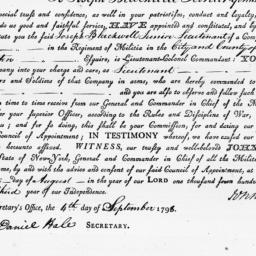 To Joseph Blackwell Junior
cial trust and confidence, as well in your patriotism, conduct and loyalty,
as good and faithful Service, HAVE appointed and constituted, and by
tute you the said Joseph Blackwell Junior Lieutenant of a Com
in the Regiment of Militia in the City and County of
Esquire, is Lieutenant-Colonel Commandant: YO
any into your charge and care, as Lieutenant
rs and Soldiers of that Company in arms, who are hereby commanded to
and you are also to observe and follow such
time to time receive from our General and Commander in Chief of the M
your superior Officer, according to the Rules and Discipline of War,
u; and for so doing, this shall be your Commission, for and during our
Council of Appointment; IN TESTIMONY whereof, we have caus
unto affixed. WITNESS, our trusty and well-beloved JOHN
State of New-York, General and Commander in Chief of all the Militi
me, by and with the advice and consent of our said Council of Appointment, at
day of August in the year of our LORD one thousand seven hund
third year of our Independence.
John
retary's Office, the 4th day of September 1798.
Daniel Hale SECRETARY.